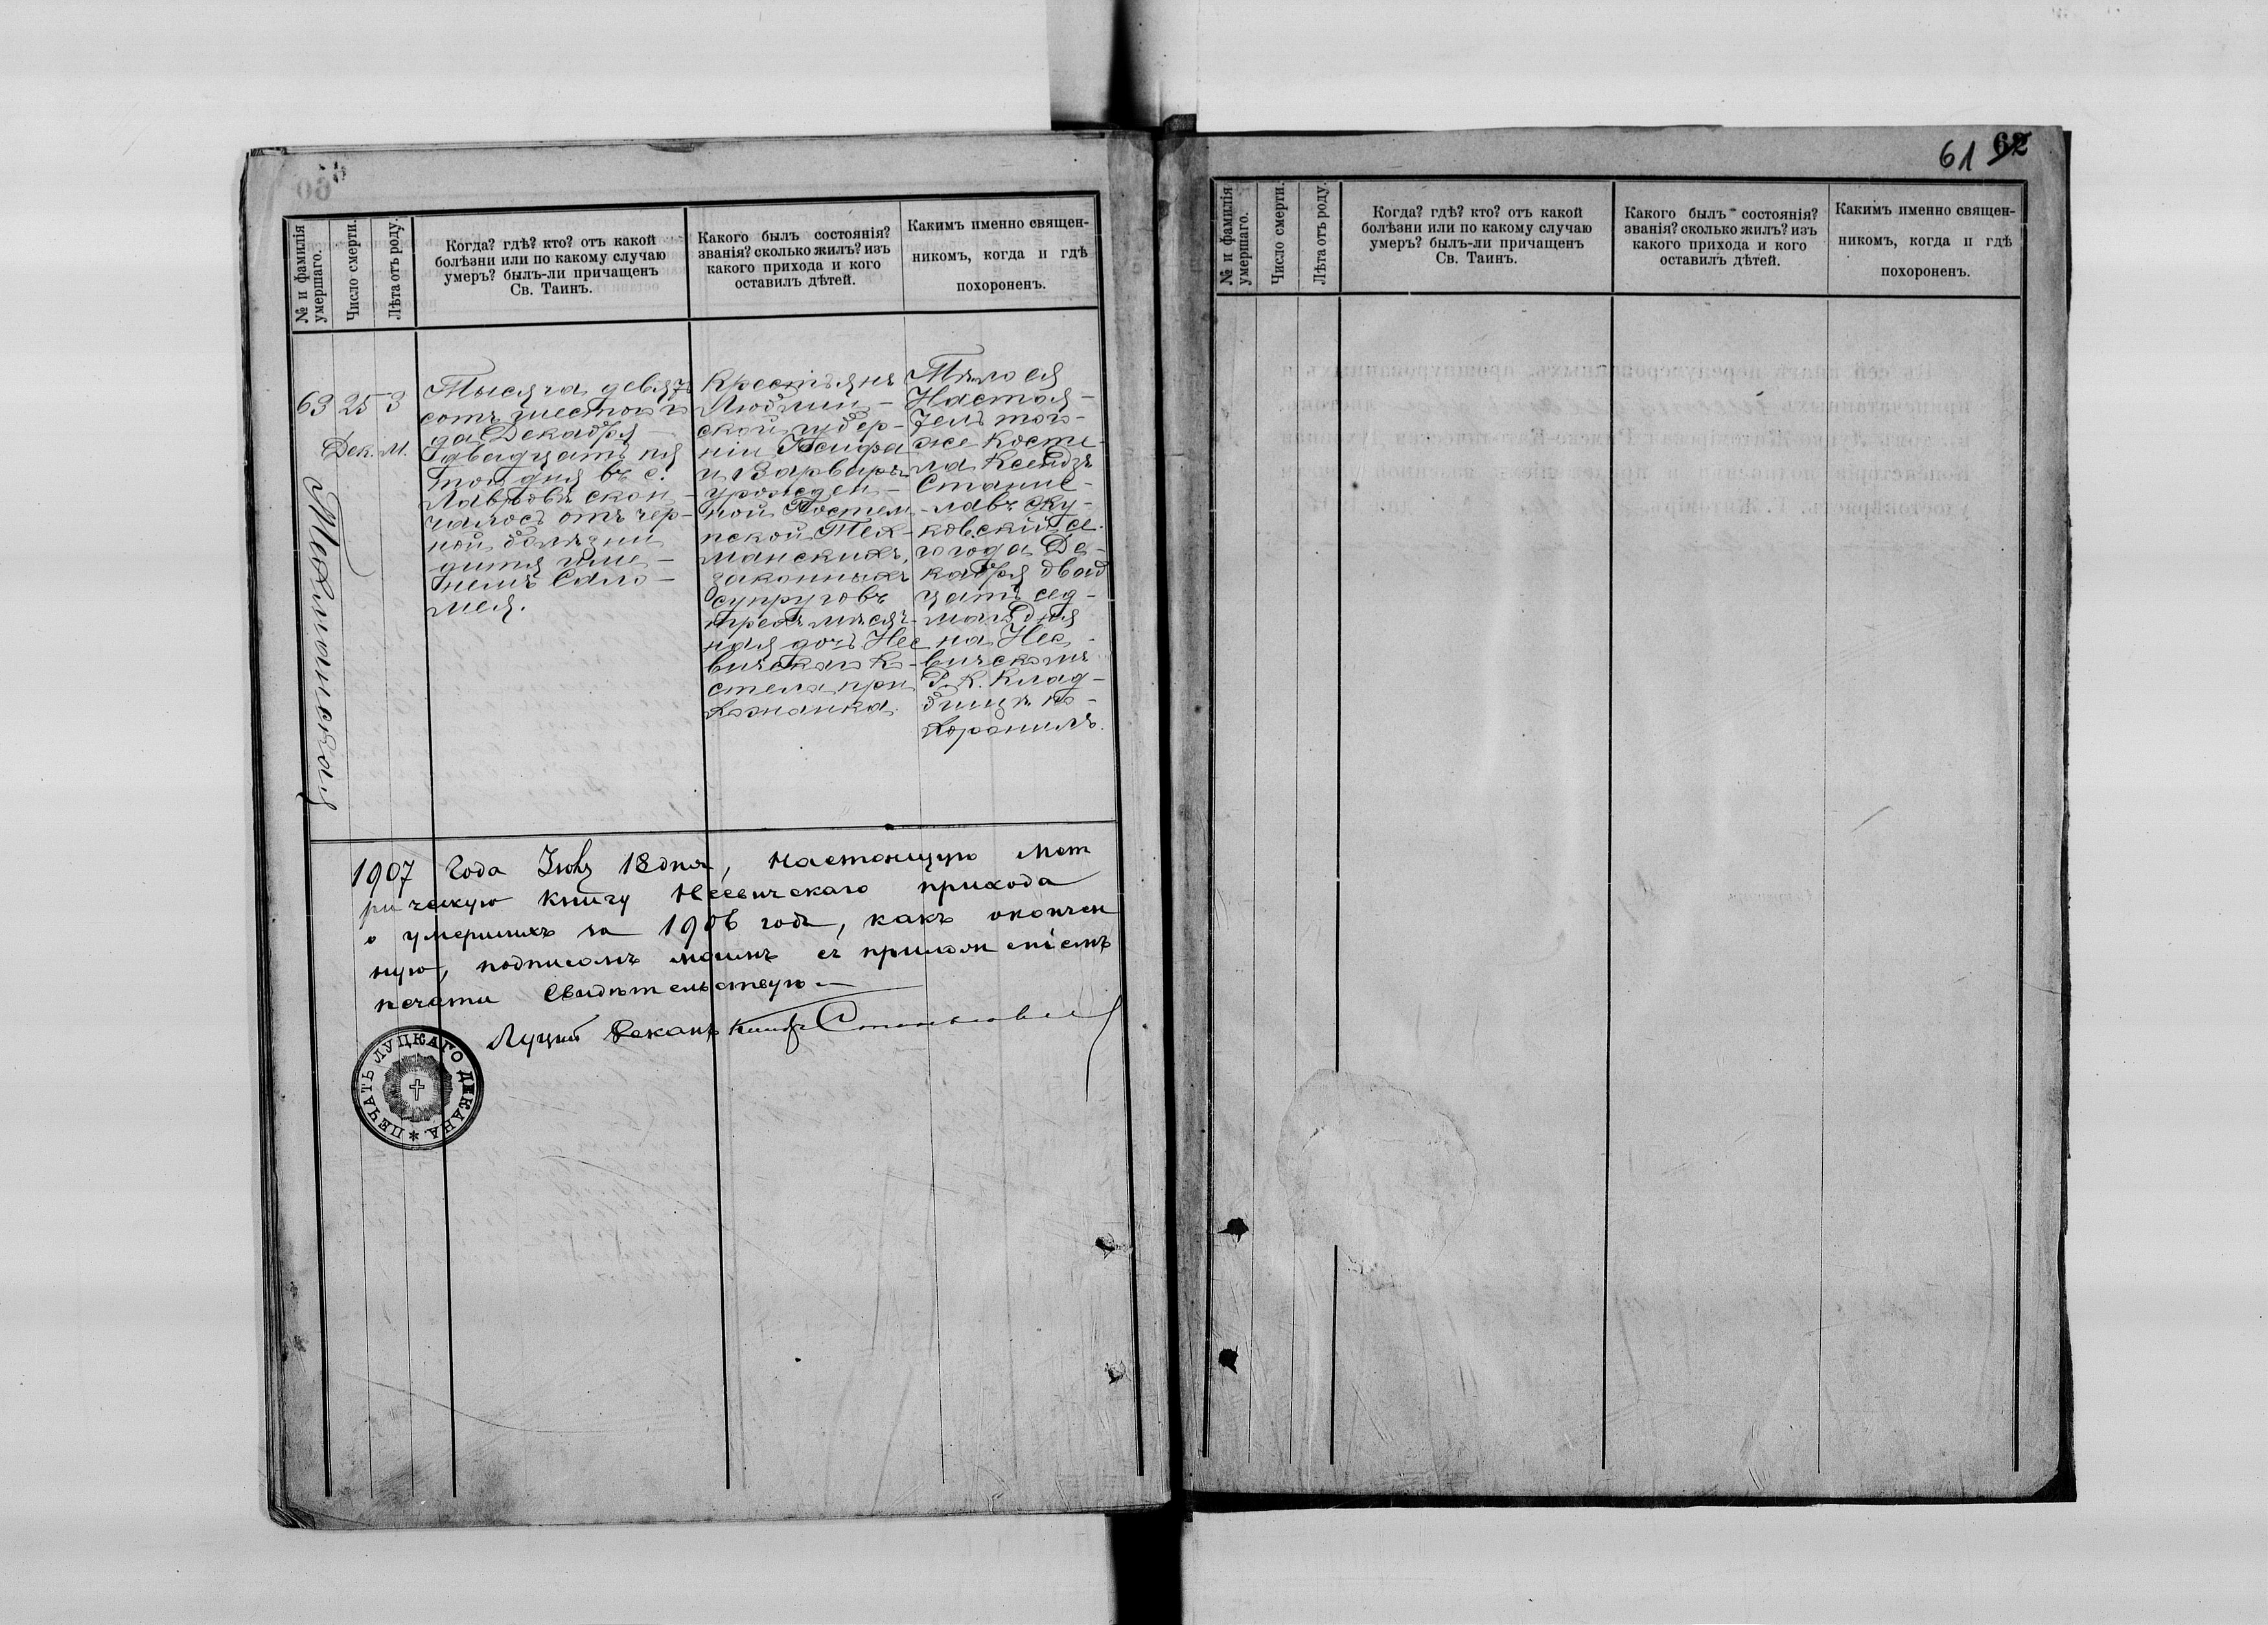 60
№ и фамилія
умершаго.
Число смерти.
Лѣта отъ роду.
Когда? гдѣ? кто? отъ какой
болѣзни или по какому случаю
умеръ? былъ-ли причащенъ
Св. Таинъ.
Какого былъ состоянія?
званія? сколько жилъ? изъ
какого прихода и кого
оставилъ дѣтей.
Какимъ именно священ-
никомъ, когда и гдѣ
похороненъ.
63
25
3
Дек.
М.
Тысяча девять
сотъ шестого го
да Декабря
двадцать пя
того дня въ с.
Лавровѣ скон-
чалось отъ чер-
ной болѣзни
дитя име-
немъ Сало-
мея.
Крестьянъ
Люблин-
ской губер-
ніи Іосифа
и Варвары
урожден-
ной
Тех-
манскихъ,
законныхъ
супруговъ
трехъ мѣсяч-
ная дочь Нес
вичскаго Ко-
стела при
хожанка.
Тѣло ея
Настоя-
тель того-
же Косте-
ла Ксендзъ
Станис-
лавъ Жу-
ковскій се-
го года Де-
кабря двад
цать сед-
маго дня
на Нес-
вичскомъ
Р. К. клад-
бищѣ по-
хоронилъ.
1907 года Іюля 18 дня, настоящую мет
рическую книгу Несвичскаго прихода
о умершихъ за 1906 годъ, какъ окончен
ную, подписомъ моимъ съ приложеніемъ
печати свидѣтельствую
Луцкій Деканъ
ПЕЧАТЬ ЛУЦКАГО ДЕКАНА. *
61 62
№ и фамилія
умершаго.
Число смерти.
Лѣта отъ роду.
Когда? гдѣ? кто? отъ какой
болѣзни или по какому случаю
умеръ? былъ-ли причащенъ
Св. Таинъ.
Какого былъ состоянія?
званія? сколько жилъ? изъ
какого прихода и кого
оставилъ дѣтей.
Какимъ именно священ-
никомъ, когда и гдѣ
похороненъ.